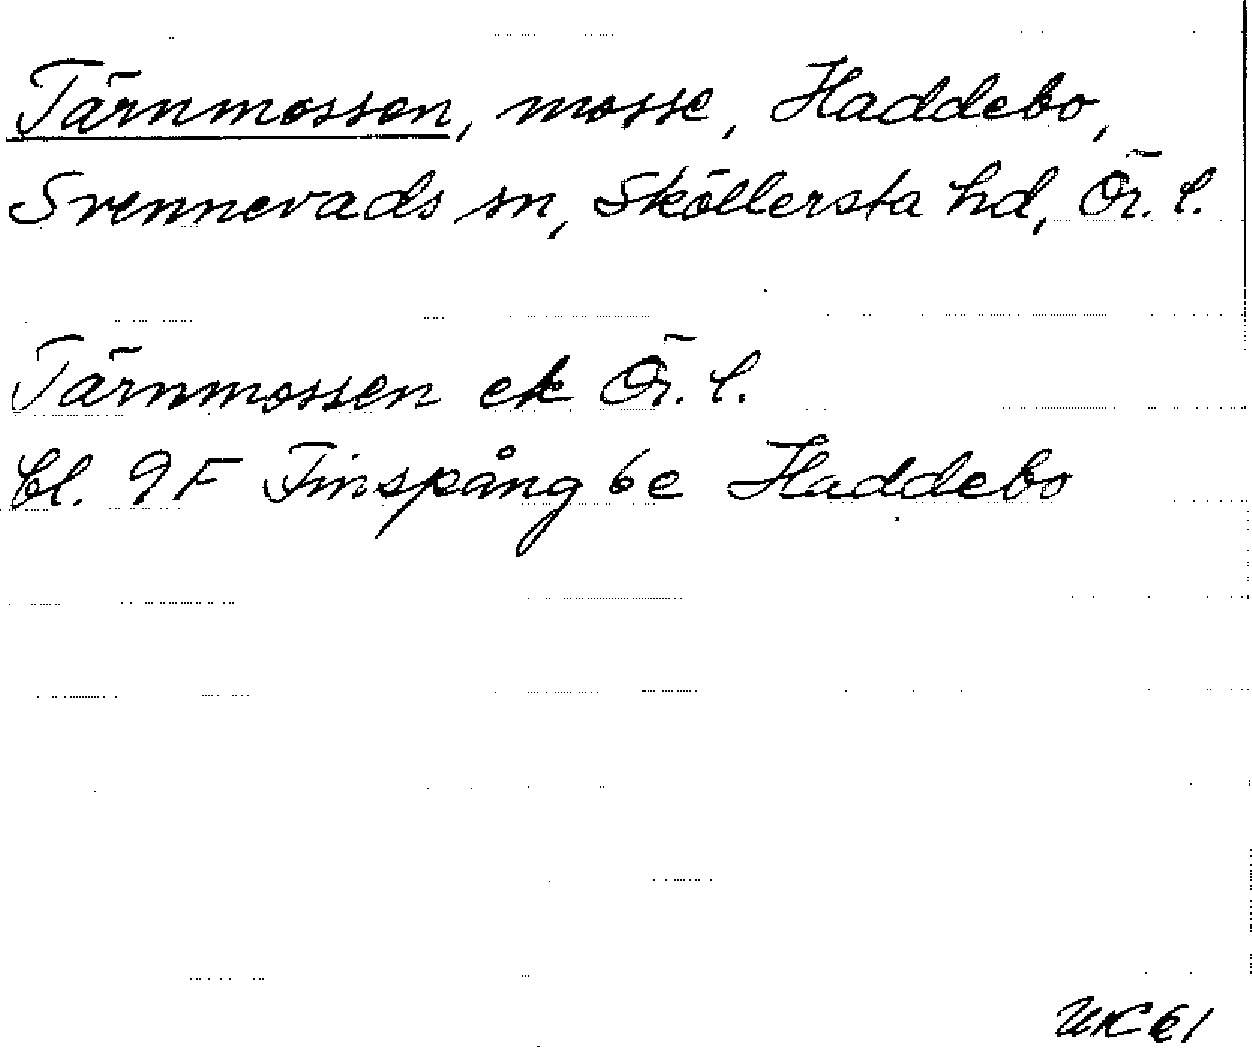 Tärnmossen, mosse, Haddebo,
Svennevads sn, Sköllersta hd, Ör. l.
Tärnmossen ek Ör. l.
bl. 9F Finspång 6e Haddebo